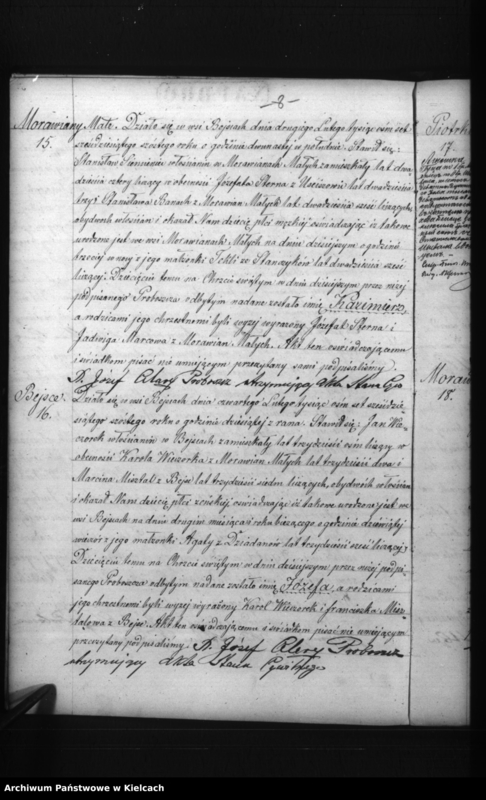 8
Morawiany Małe. Działo się we wsi Bejscach dnia drugiego Lutego tysiąc ośmset
15.
sześćdziesiątego szóstego roku o godzinie dwunastej w południe. Stawił się:
Stanisław włościanin w Morawianach Małych zamieszkały lat dwa-
dzieścia cztery liczący w obecności Józefata Sterna z lat dwadzieścia
trzy i Stanisława Banach z Morawian Małych lat dwadzieścia sześć liczących,
obydwóch włościan i okazał Nam dziecię płci męzkiej oświadczając iż takowe
urodzone jest we wsi Morawianach Małych na dniu dzisiejszym o godzinie
trzeciej w nocy z jego małżonki Tekli z Stanczyków lat dwadzieścia sześć
liczącej. Dziecięciu temu na Chrzcie świętym w dniu dzisiejszym przez niżej
podpisanego Proboszcza odbytym nadane zostało imię Kazimierz,
a rodzicami jego chrzestnemi byli wyżej wyrażony Józefat Sterna i
Jadwiga Marcowa z Morawian Małych. Akt ten oświadczającemu
i świadkom pisać nie umiejącym przeczytany sami podpisaliśmy.
X. Józef Proboszcz utrzymujący Akta Stanu Cyw
Bejsce
16.
Działo się we wsi Bejscach dnia czwartego Lutego tysiąc ośm set sześćdzie-
siątego szóstego roku o godzinie dziesiątej z rana. Stawił się: Jan Wie-
czorek włościanin w Bejscach zamieszkały lat trzydzieści ośm liczący w
obecności Karola Wieczorka z Morawian Małych lat trzydzieści dwa i
Marcina Misztal z Bejsc lat trzydzieści siedm liczących, obydwóch włościan
i okazał Nam dziecię płci żeńskiej oświadczając iż takowe urodzone jest we
wsi Bejscach na dniu drugim miesiąca i roku bieżącego o godzinie dziewiątej
wieczór z jego małżonki Agaty z Dziadanów lat trzydzieści sześć liczącej.
Dziecięciu temu na Chrzcie świętym w dniu dzisiejszym przez niżej podpi-
sanego Proboszcza odbytym nadane zostało imię Józefa, a rodzicami
jego chrzestnemi byli wyżej wyrażony Karol Wieczorek i Franciszka Misz-
talowa z Bejsc. Akt ten oświadczającemu i świadkom pisać nie umiejącym
przeczytany podpisaliśmy. X. Józef Proboszcz
utrzymujący Akta Stanu Cywilnego
17.
Moraw
18.
Archiwum Państwowe w Kielcach